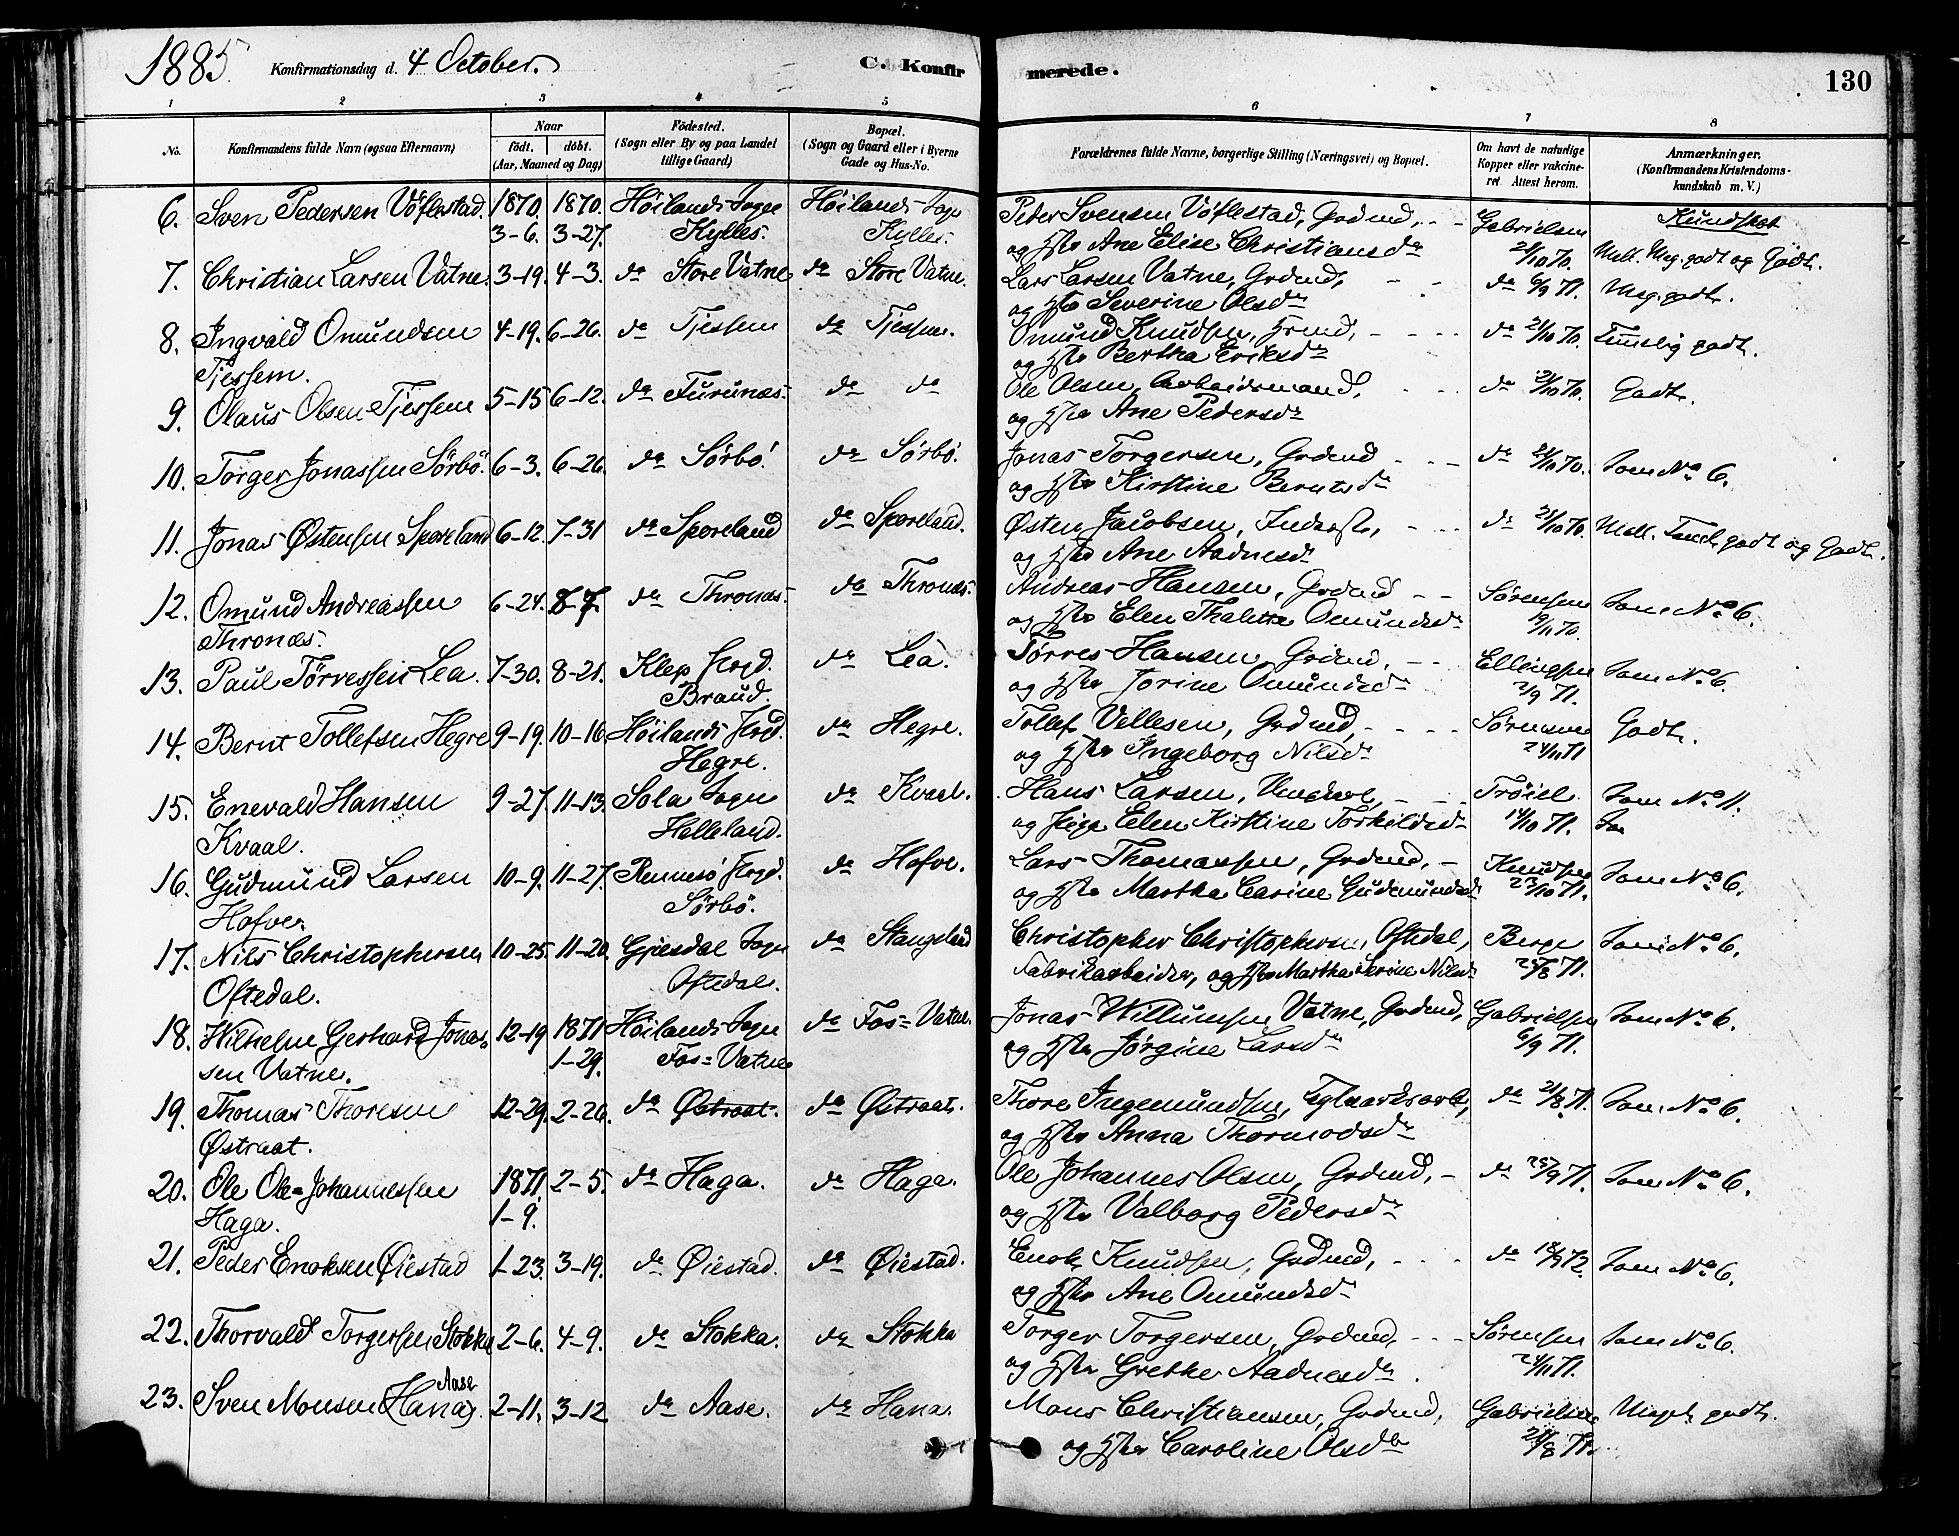 1885. Konfirmationsdag d. 4 October. C. Konfirmerede. 130
1 2 3 4 5 6 7 8
No. Konfirmandens fulde Navn (ogsaa Efternavn) Naar födt. döbt. (Aar, Maaned og Dag) Födested. (Sogn eller By og paa Landet tillige Gaard) Bopæl. (Sogn og Gaard eller i Byerne Gade og Hus-No. Forældrenes fulde Navne, borgerlige Stilling (Næringsvei) og Bopæl. Om havt de naturlige Kopper eller vakcineret. Attest herom. Anmærkninger. (Konfirmandens Kristendomskundskab m. V.)
6. Sven Pedersen Vöflestad. 1870. 1870. Höilands Sogn Höilands Sogn Peder Svensen Vöflestad, Grdmd, Gabrielsen Kundskab
3-6. 3-27. Kylles. Kylles. og Hstr Ane Elise Christiansdr 21/10 70. Mell. Meg. godt og Godt.
7. Christian Larsen Vatne. 3-19. 4-3. do Store Vatne do Store Vatne. Lars Larsen Vatne, Grdmd, do 6/9 71. Meg. godt.
og Hstr Severine Olsdr
8. Ingvald Omundsen 4-19. 6-26. do Tjessem do Tjessem. Omund Knudsen, do 21/10 70. Temmelig godt.
Tjessem. og Hstr Bertha Eriksdr
9. Olaus Olsen Tjessem 5-15 6-12. do Furunæs. do do Ole Olsen, Arbeidsmand, do 21/10 70. Godt.
og Hstr Ane Pedersdr
10. Torger Jonassen Sörbö. 6-3. 6-26. do Sörbö. do Sörbö. Jonas Torgersen, Grdmd do 21/10 70. Som No 6.
og Hstr Kirstine Berntsdr
11. Jonas Østensen Sporeland 6-12. 7-31 do Sporeland do Sporeland. Østen Jacobsen, Inderst, do 21/10 70. Mell. Teml. godt og Godt.
og Hstr Ane Aadnesdr
12. Omund Andreassen 6-24. 8-7. do Thronæs. do Thronæs. Andreas Hansen, Grdmd Sörensen Som No 6.
Thronæs. og Hstr Elen Thalette Omundsdr 19/11 70.
13. Paul Törressen Lea. 7-30. 8-21. Klep Prgd. do Lea. Törres Hansen, Grdmd, Ellingsen Som No 6.
Braud. og Hstr Jorine Omundsdr 2/9 71.
14. Bernt Tollefsen Hegre 9-19. 10-16. Höilands Prgd. do Hegre. Tollef Villesen, Grdmd, Sörensen Godt.
Hegre. og Hstr Ingeborg Nilsdr 24/11 71
15. Enevald Hansen 9-27. 11-13. Sola Sogn do Kvaal. Hans Larsen, Tröiel Som No 11.
Kvaal. Helleland. og Pige Elen Kirstine Torkildsdr 14/10 71.
16. Gudmund Larsen 10-9. 11-27. Rennesö Prgd. do Hofve. Lars Thomassen, Grdmd, Knudsen Som No 6.
Hofve. Sörbö. og Hstr Martha Carine Gudmundsdr 23/10 71.
17. Nils Christophersen 10-25. 11-20. Gjesdal Sogn do Stangeland Christopher Christophersen Oftedal, Berge Som No 6.
Oftedal. Oftedal. Fabrikarbeider, og Hstr Martha Serine Nilsdr 25/8 71.
18. Wilhelm Gerhard Jonas- 12-19 1871 Höilands Sogn do Fos=Vatne. Jonas Willumsen Vatne, Grdmd, Gabrielsen Som No 6.
sen Vatne. 1-29. Fos=Vatne og Hstr Jörgine Larsdr 6/9 71.
19. Thomas Thoresen 12-29. 2-26. do Østraat. do Østraat. Thore Ingemundsen, Teglværksarb, do 21/8 71. Som No 6.
Østraat. og Hstr Anna Thormodsdr
20. Ole Ole-Johannessen 1871. 2-5. do Haga. do Haga. Ole Johannes Olsen, Grdmd, do 25/9 71. Som No 6.
Haga. 1-9. og Hstr Valborg Pedersdr
21. Peder Enoksen Øiestad 1-23. 3-19. do Øiestad. do Øiestad. Enok Knudsen, Grdmd, do 72. Som No 6.
og Hstr Ane Omundsdr
22. Thorvald Torgersen Stokka 2-6. 4-9. do Stokka. do Stokka Torger Torgersen, Grdmd, Sörensen Som No 6.
og Hstr Grethe Aadnesdr. 24/11 71.
23. Sven Monsen (Hana) Aase 2-11. 3-12 do Aase. do Hana. Mons Christiansen, Grdmd, Gabrielsen Meget godt.
og Hstr Caroline Olsdr 21/8 71.